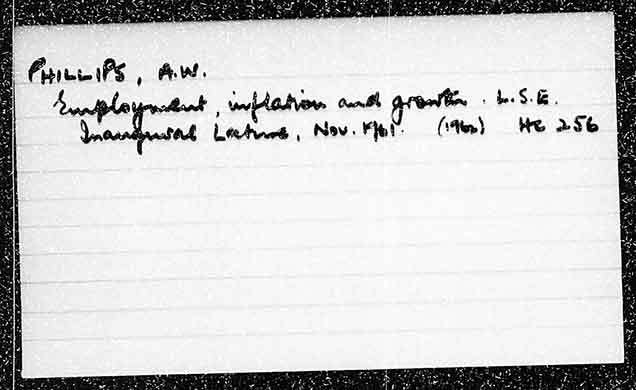 PHILLIPS, A.W.
Employment, inflation and growth. L.S.E.
Inaugural Lecture, Nov. 1961. (1962) HC 256